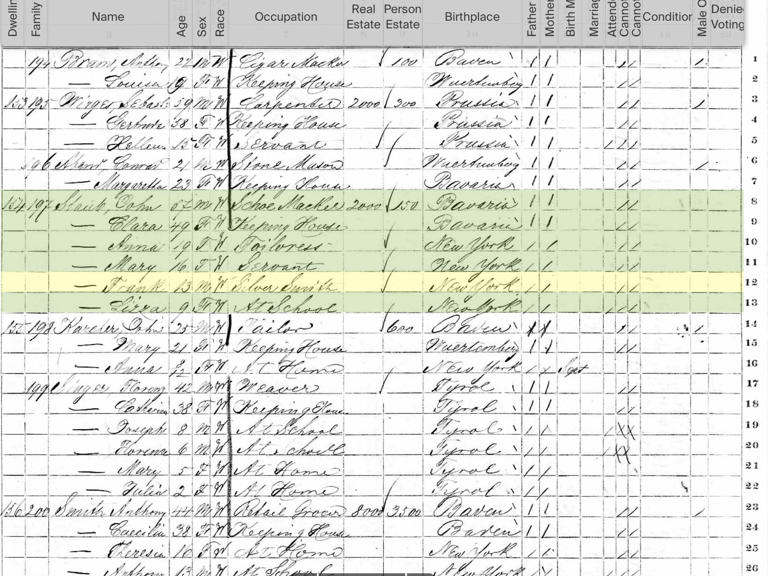 Dwellin Family Name Age Sex Race Occupation Real Estate Person Estate Birthplace Father Mother Birth M Marriag Attend Cannot Cannot Condition Male O Denie Voting
194 Anthony 22 M W Cigar Maker 100 Baden 1
— Louisa 19 F W Keeping House Wuertemburg 2
153 195 Sebast 59 M W Carpenter 2000 300 Prussia 3
— Gertrude 58 F W Keeping House Prussia 4
— Hellen 15 F W Servant Prussia 5
196 Conrad 21 M W Stone Mason Wuertemburg 6
— Margaretta 23 F W Keeping House Bavaria 7
154 197 Staub, John M W Schoe Macker 2000 150 Bavaria 8
— Clara 49 F W Keeping House Bavaria 9
— Anna 19 F W Tailoress New York 10
— Mary 16 F W Servant New York 11
— Frank 13 M W Silver Smith New York 12
— Lizza 9 F W At School New York 13
155 198 John 25 M W Tailor 600 Baden 14
— Mary 21 F W Keeping House Wuertemburg 15
— Anna F W At Home New York Sept 16
199 Singer 42 M W Weaver Tyrol 17
— 38 F W Keeping House Tyrol 18
— Joseph 8 M W At School Tyrol 19
— 6 M W At School Tyrol 20
— Mary 5 F W At Home Tyrol 21
— Julia 2 F W At Home Tyrol 22
156 200 Smith Anthony 44 M W Retail Grocer 8000 3500 Baden 23
— Caecilia 38 F W Keeping House Baden 24
— Theresia 16 F W At Home New York 25
— Anthony 13 M W At School New York 26